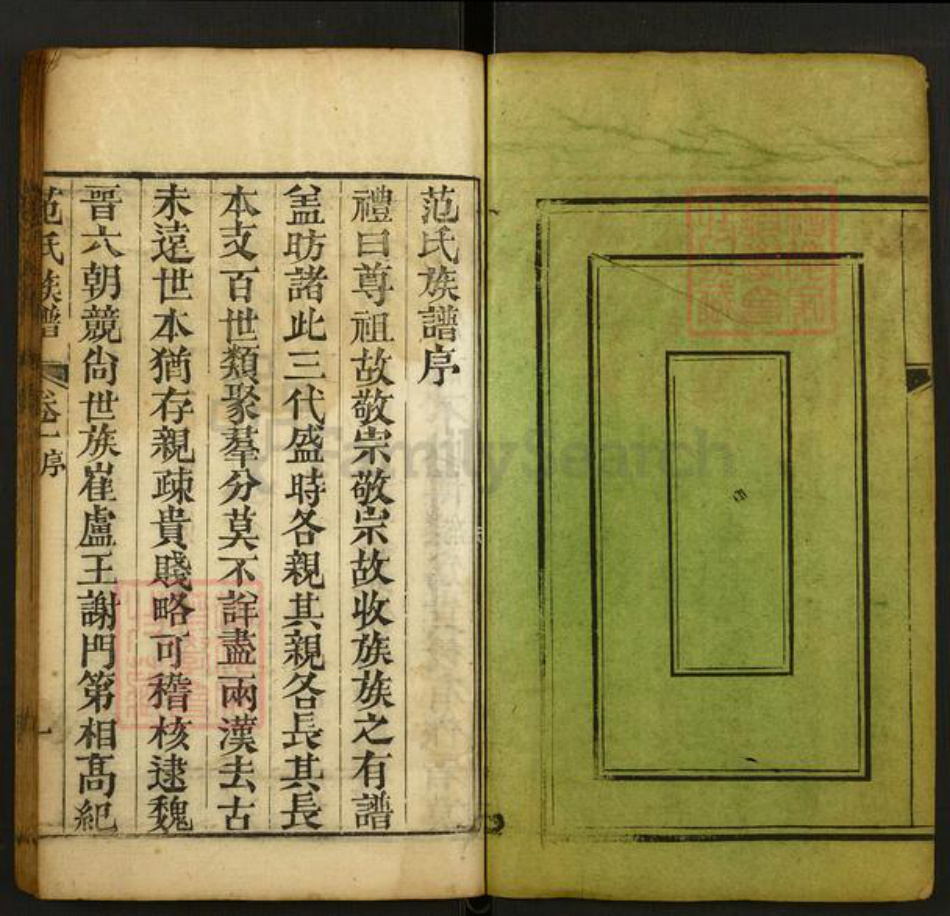 范氏族譜序
禮曰尊祖故敬宗敬宗故收族族之有譜
盖昉諸此三代盛時各親其親各長其長
本支百世類聚羣分莫不詳盡兩漢去古
未遠世本猶存親疎貴賤略可稽核逮魏
晉六朝競尙世族崔盧王謝門第相高紀
范氏族譜 卷一序 一
FamilySearch